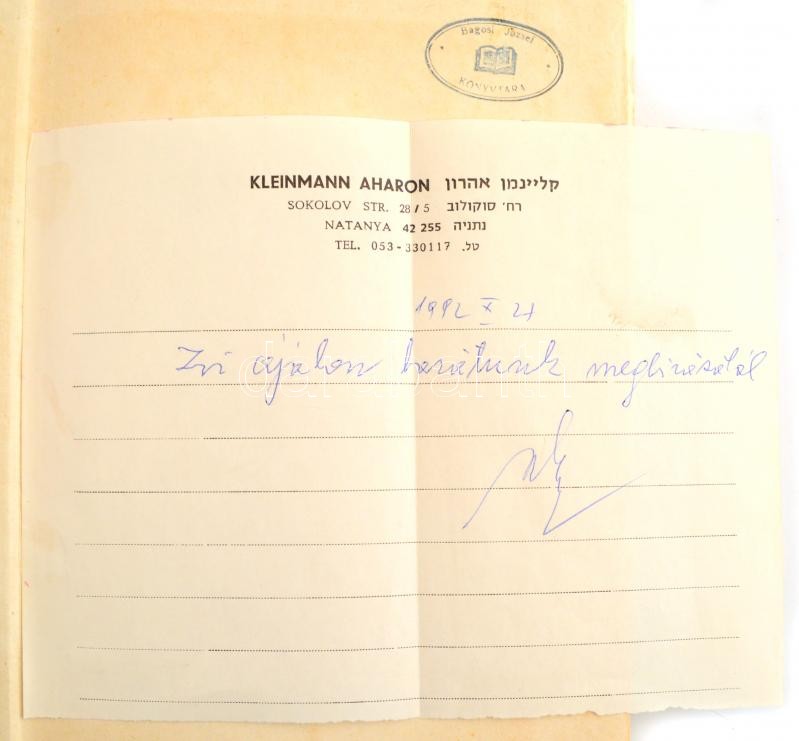 Bagosi József
KÖNYVTÁRA
KLEINMANN AHARON קליינמן אהרון
SOKOLOV STR. 28/5 רח' סוקולוב
NATANYA 42 255 נתניה
TEL. 053-330117 טל.
1992 X 21
Zvi barátunk